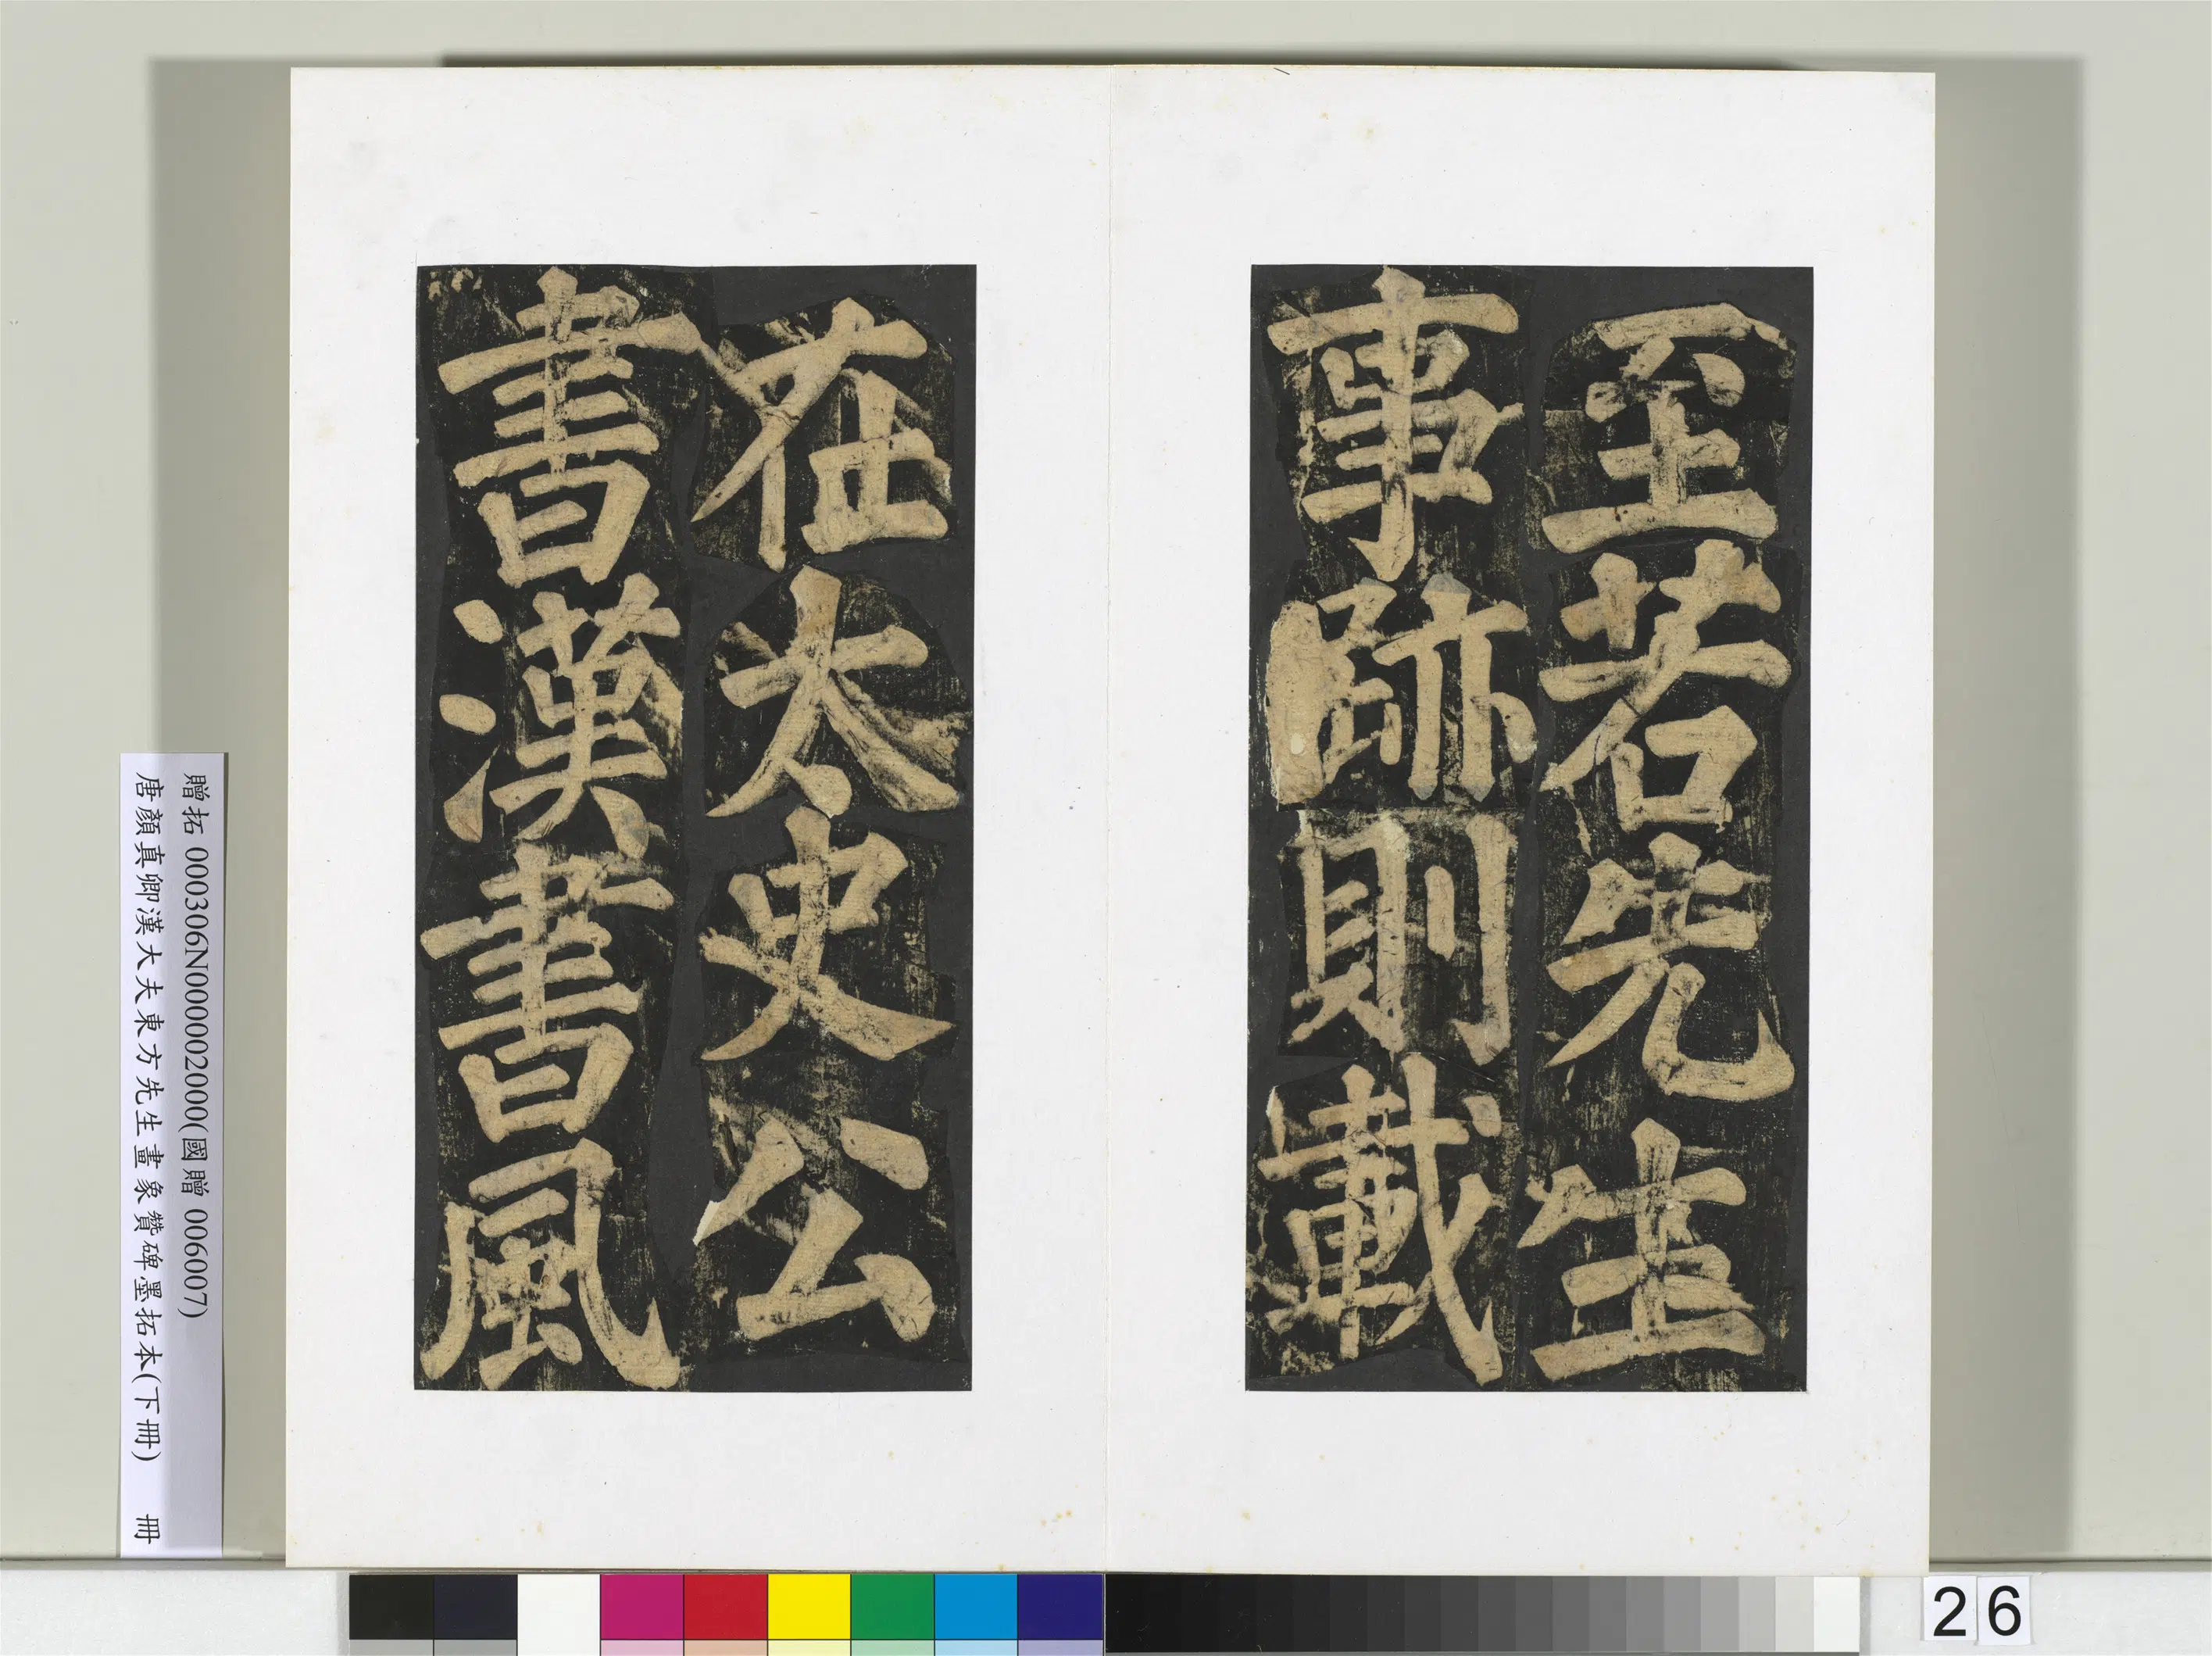 至若先生
事跡則載
在太史公
書漢書風
贈拓 000306N000002000(國贈 006007)
唐顏真卿漢大夫東方先生畫象贊碑墨拓本(下冊) 冊
26